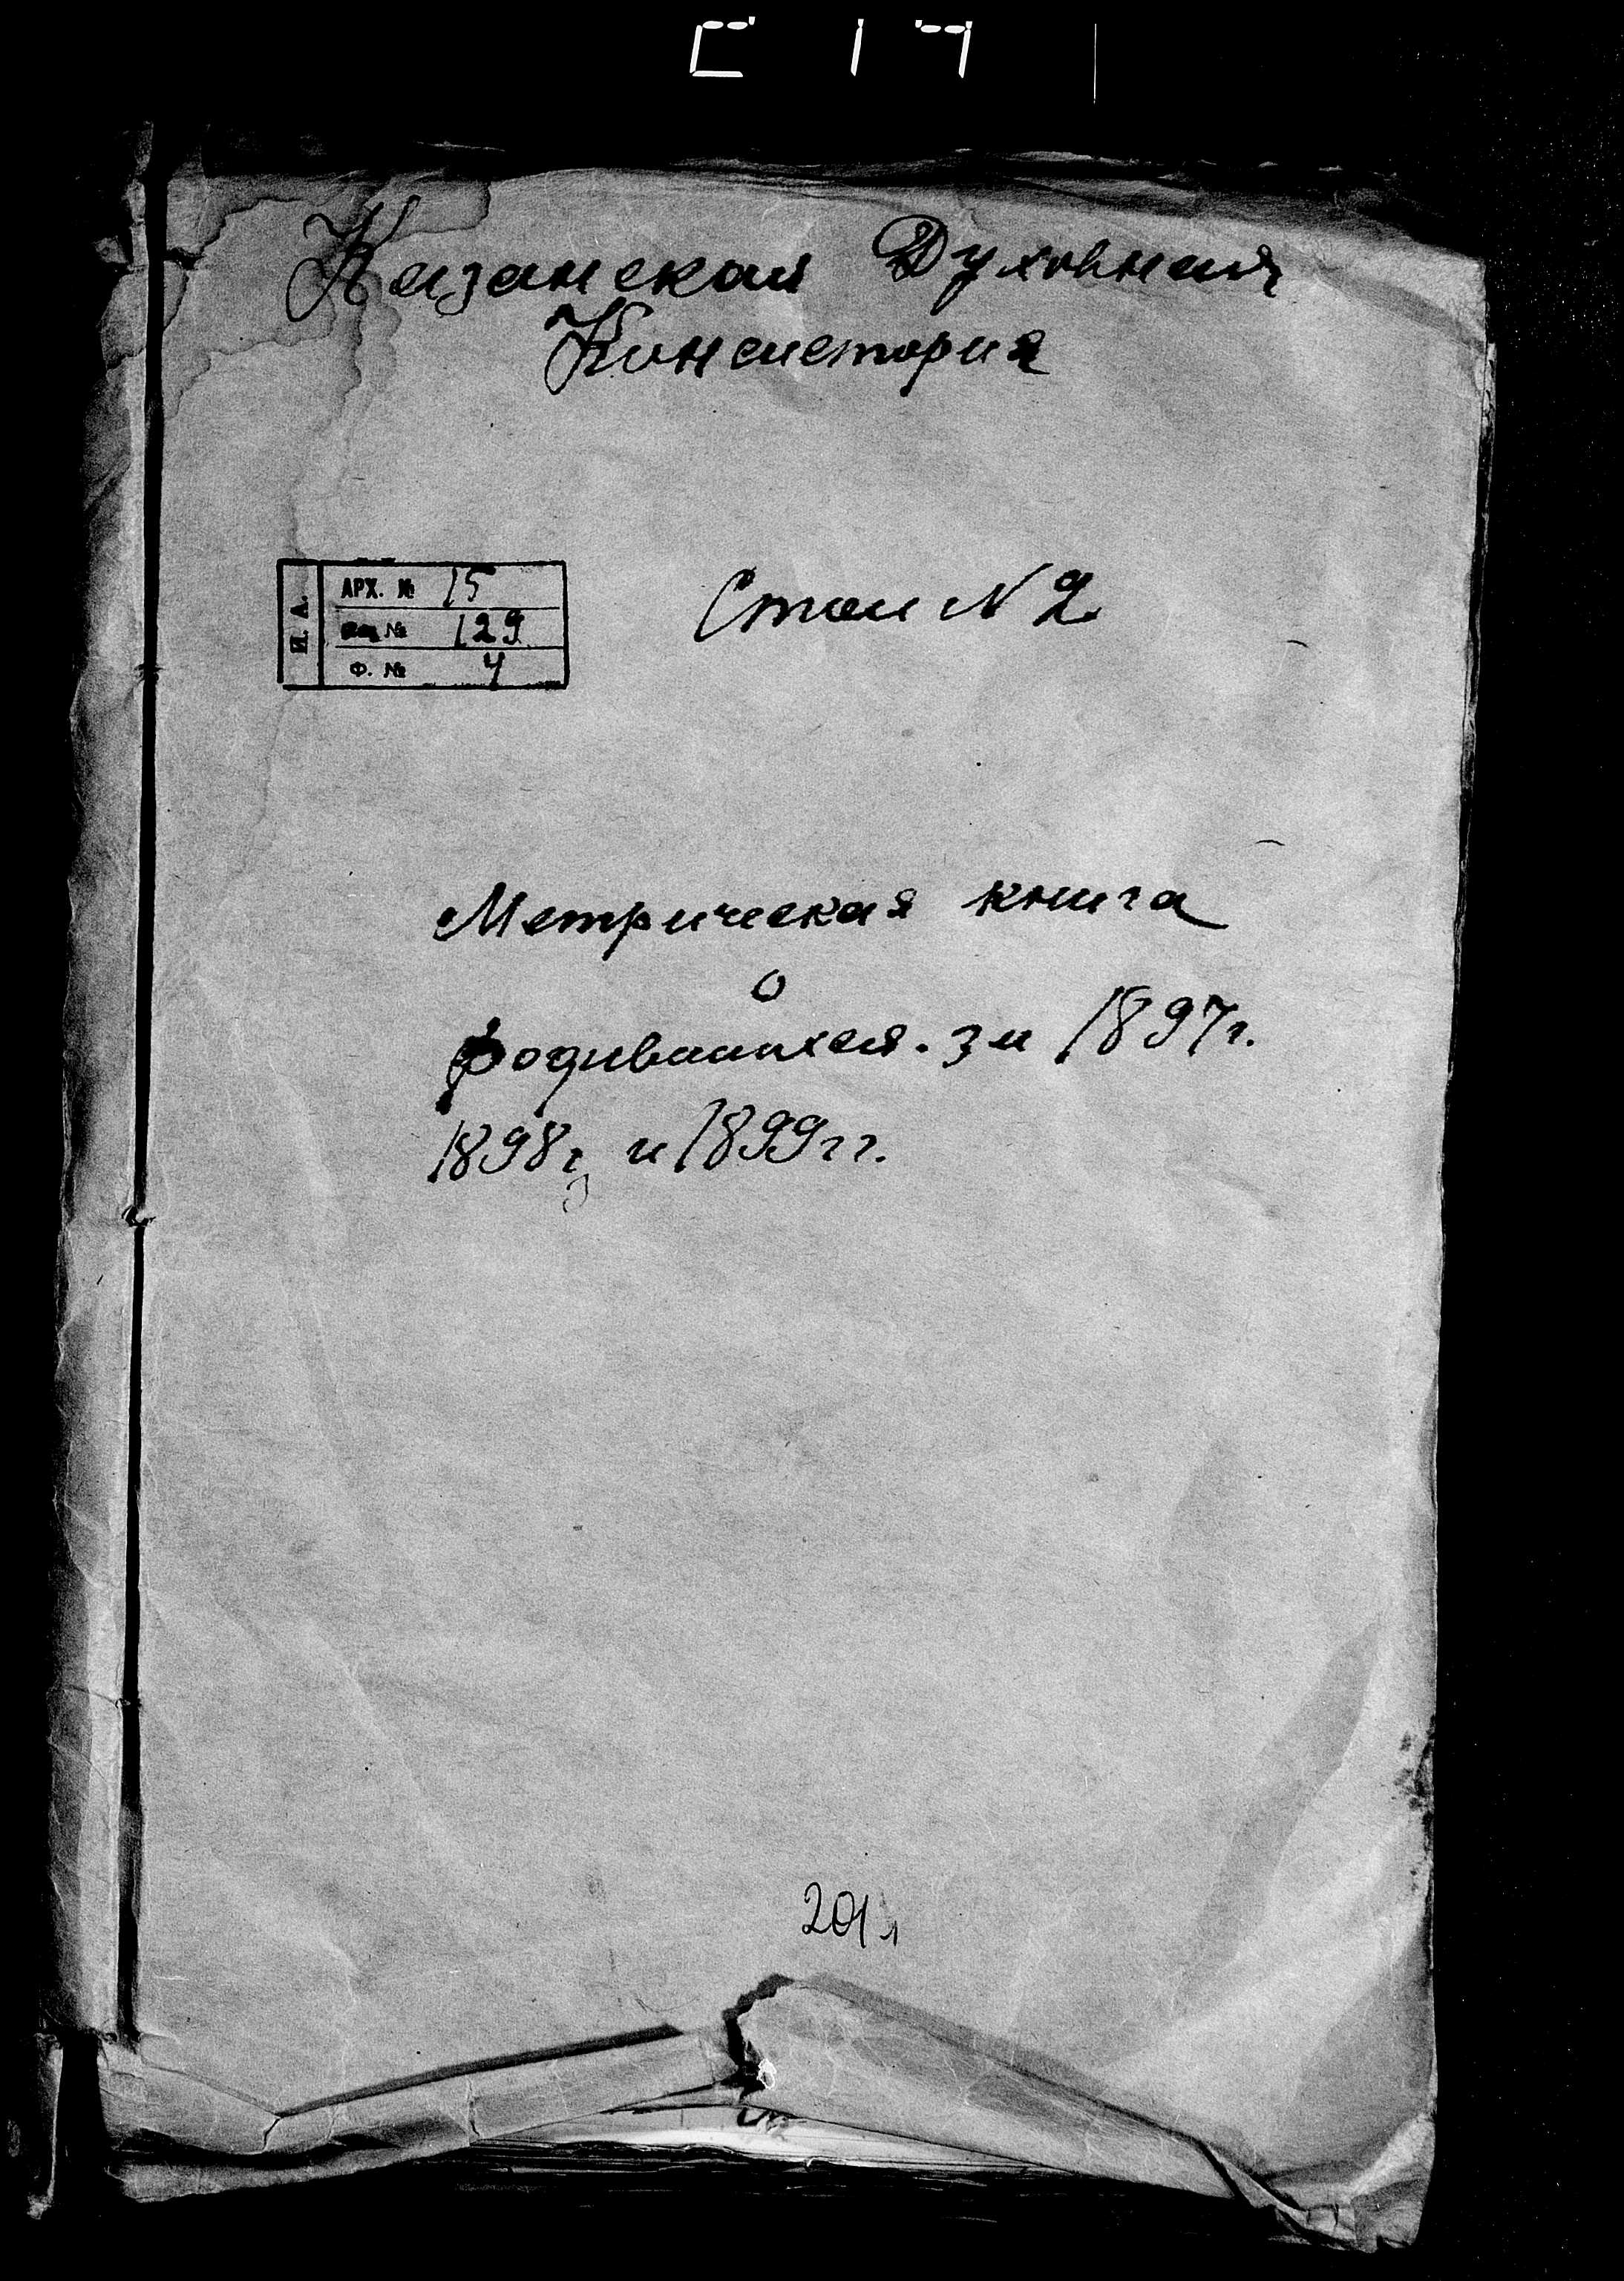 Казанская Духовная
Консистория
Ц. А.
АРХ. № 15
№ 129
Ф. № 4
Стол N 2
Метрическая книга
о
родившихся. за 1897г.
1898г, и 1899гг.
201 л